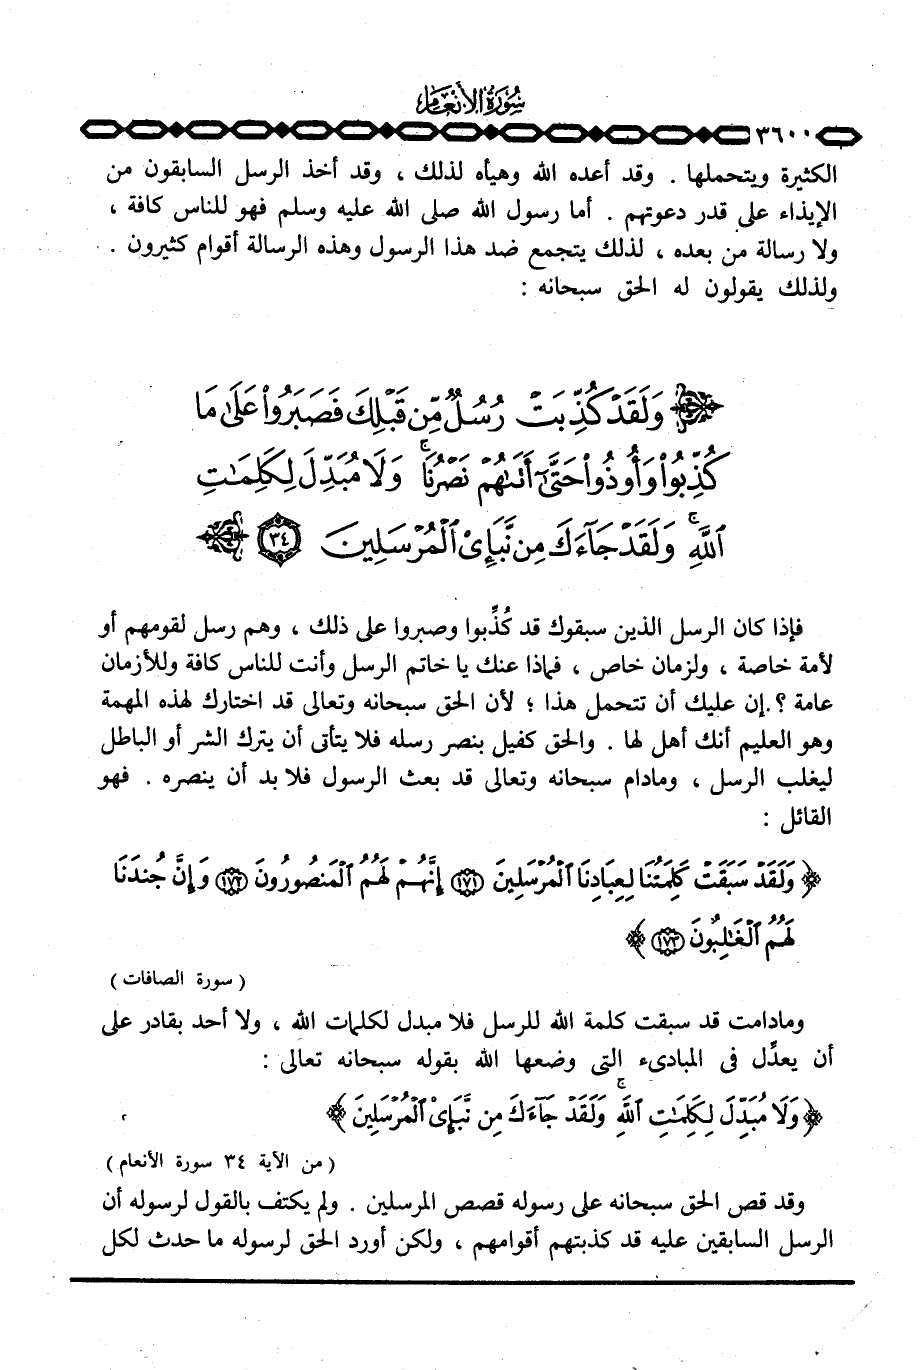 سورة الأنعام
٣٦٠٠
الكثيرة ويتحملها . وقد أعده الله وهيأه لذلك ، وقد أخذ الرسل السابقون من
الإيذاء على قدر دعوتهم . أما رسول الله صلى الله عليه وسلم فهو للناس كافة ،
ولا رسالة من بعده ، لذلك يتجمع ضد هذا الرسول وهذه الرسالة أقوام كثيرون .
ولذلك يقولون له الحق سبحانه :
وَلَقَدْ كُذِّبَتْ رُسُلٌ مِّن قَبْلِكَ فَصَبَرُوا۟ عَلَىٰ مَا
كُذِّبُوا۟ وَأُوذُوا۟ حَتَّىٰٓ أَتَىٰهُمْ نَصْرُنَا ۚ وَلَا مُبَدِّلَ لِكَلِمَـٰتِ
ٱللَّهِ ۚ وَلَقَدْ جَآءَكَ مِن نَّبَإِى۟ ٱلْمُرْسَلِينَ ٣٤
فإذا كان الرسل الذين سبقوك قد كُذِّبوا وصبروا على ذلك ، وهم رسل لقومهم أو
لأمة خاصة ، ولزمان خاص ، فماذا عنك يا خاتم الرسل وأنت للناس كافة وللأزمان
عامة ؟ . إن عليك أن تتحمل هذا ؛ لأن الحق سبحانه وتعالى قد اختارك لهذه المهمة
وهو العليم أنك أهل لها . والحق كفيل بنصر رسله فلا يتأتى أن يترك الشر أو الباطل
ليغلب الرسل ، ومادام سبحانه وتعالى قد بعث الرسول فلا بد أن ينصره . فهو
القائل :
﴿ وَلَقَدْ سَبَقَتْ كَلِمَتُنَا لِعِبَادِنَا ٱلْمُرْسَلِينَ ١٧١ إِنَّهُمْ لَهُمُ ٱلْمَنصُورُونَ ١٧٢ وَإِنَّ جُندَنَا
لَهُمُ ٱلْغَـٰلِبُونَ ١٧٣ ﴾
( سورة الصافات )
ومادامت قد سبقت كلمة الله للرسل فلا مبدل لكلمات الله ، ولا أحد بقادر على
أن يعدِّل فى المبادىء التى وضعها الله بقوله سبحانه تعالى :
﴿ وَلَا مُبَدِّلَ لِكَلِمَـٰتِ ٱللَّهِ ۚ وَلَقَدْ جَآءَكَ مِن نَّبَإِى۟ ٱلْمُرْسَلِينَ ﴾
( من الآية ٣٤ سورة الأنعام )
وقد قص الحق سبحانه على رسوله قصص المرسلين . ولم يكتف بالقول لرسوله أن
الرسل السابقين عليه قد كذبتهم أقوامهم ، ولكن أورد الحق لرسوله ما حدث لكل